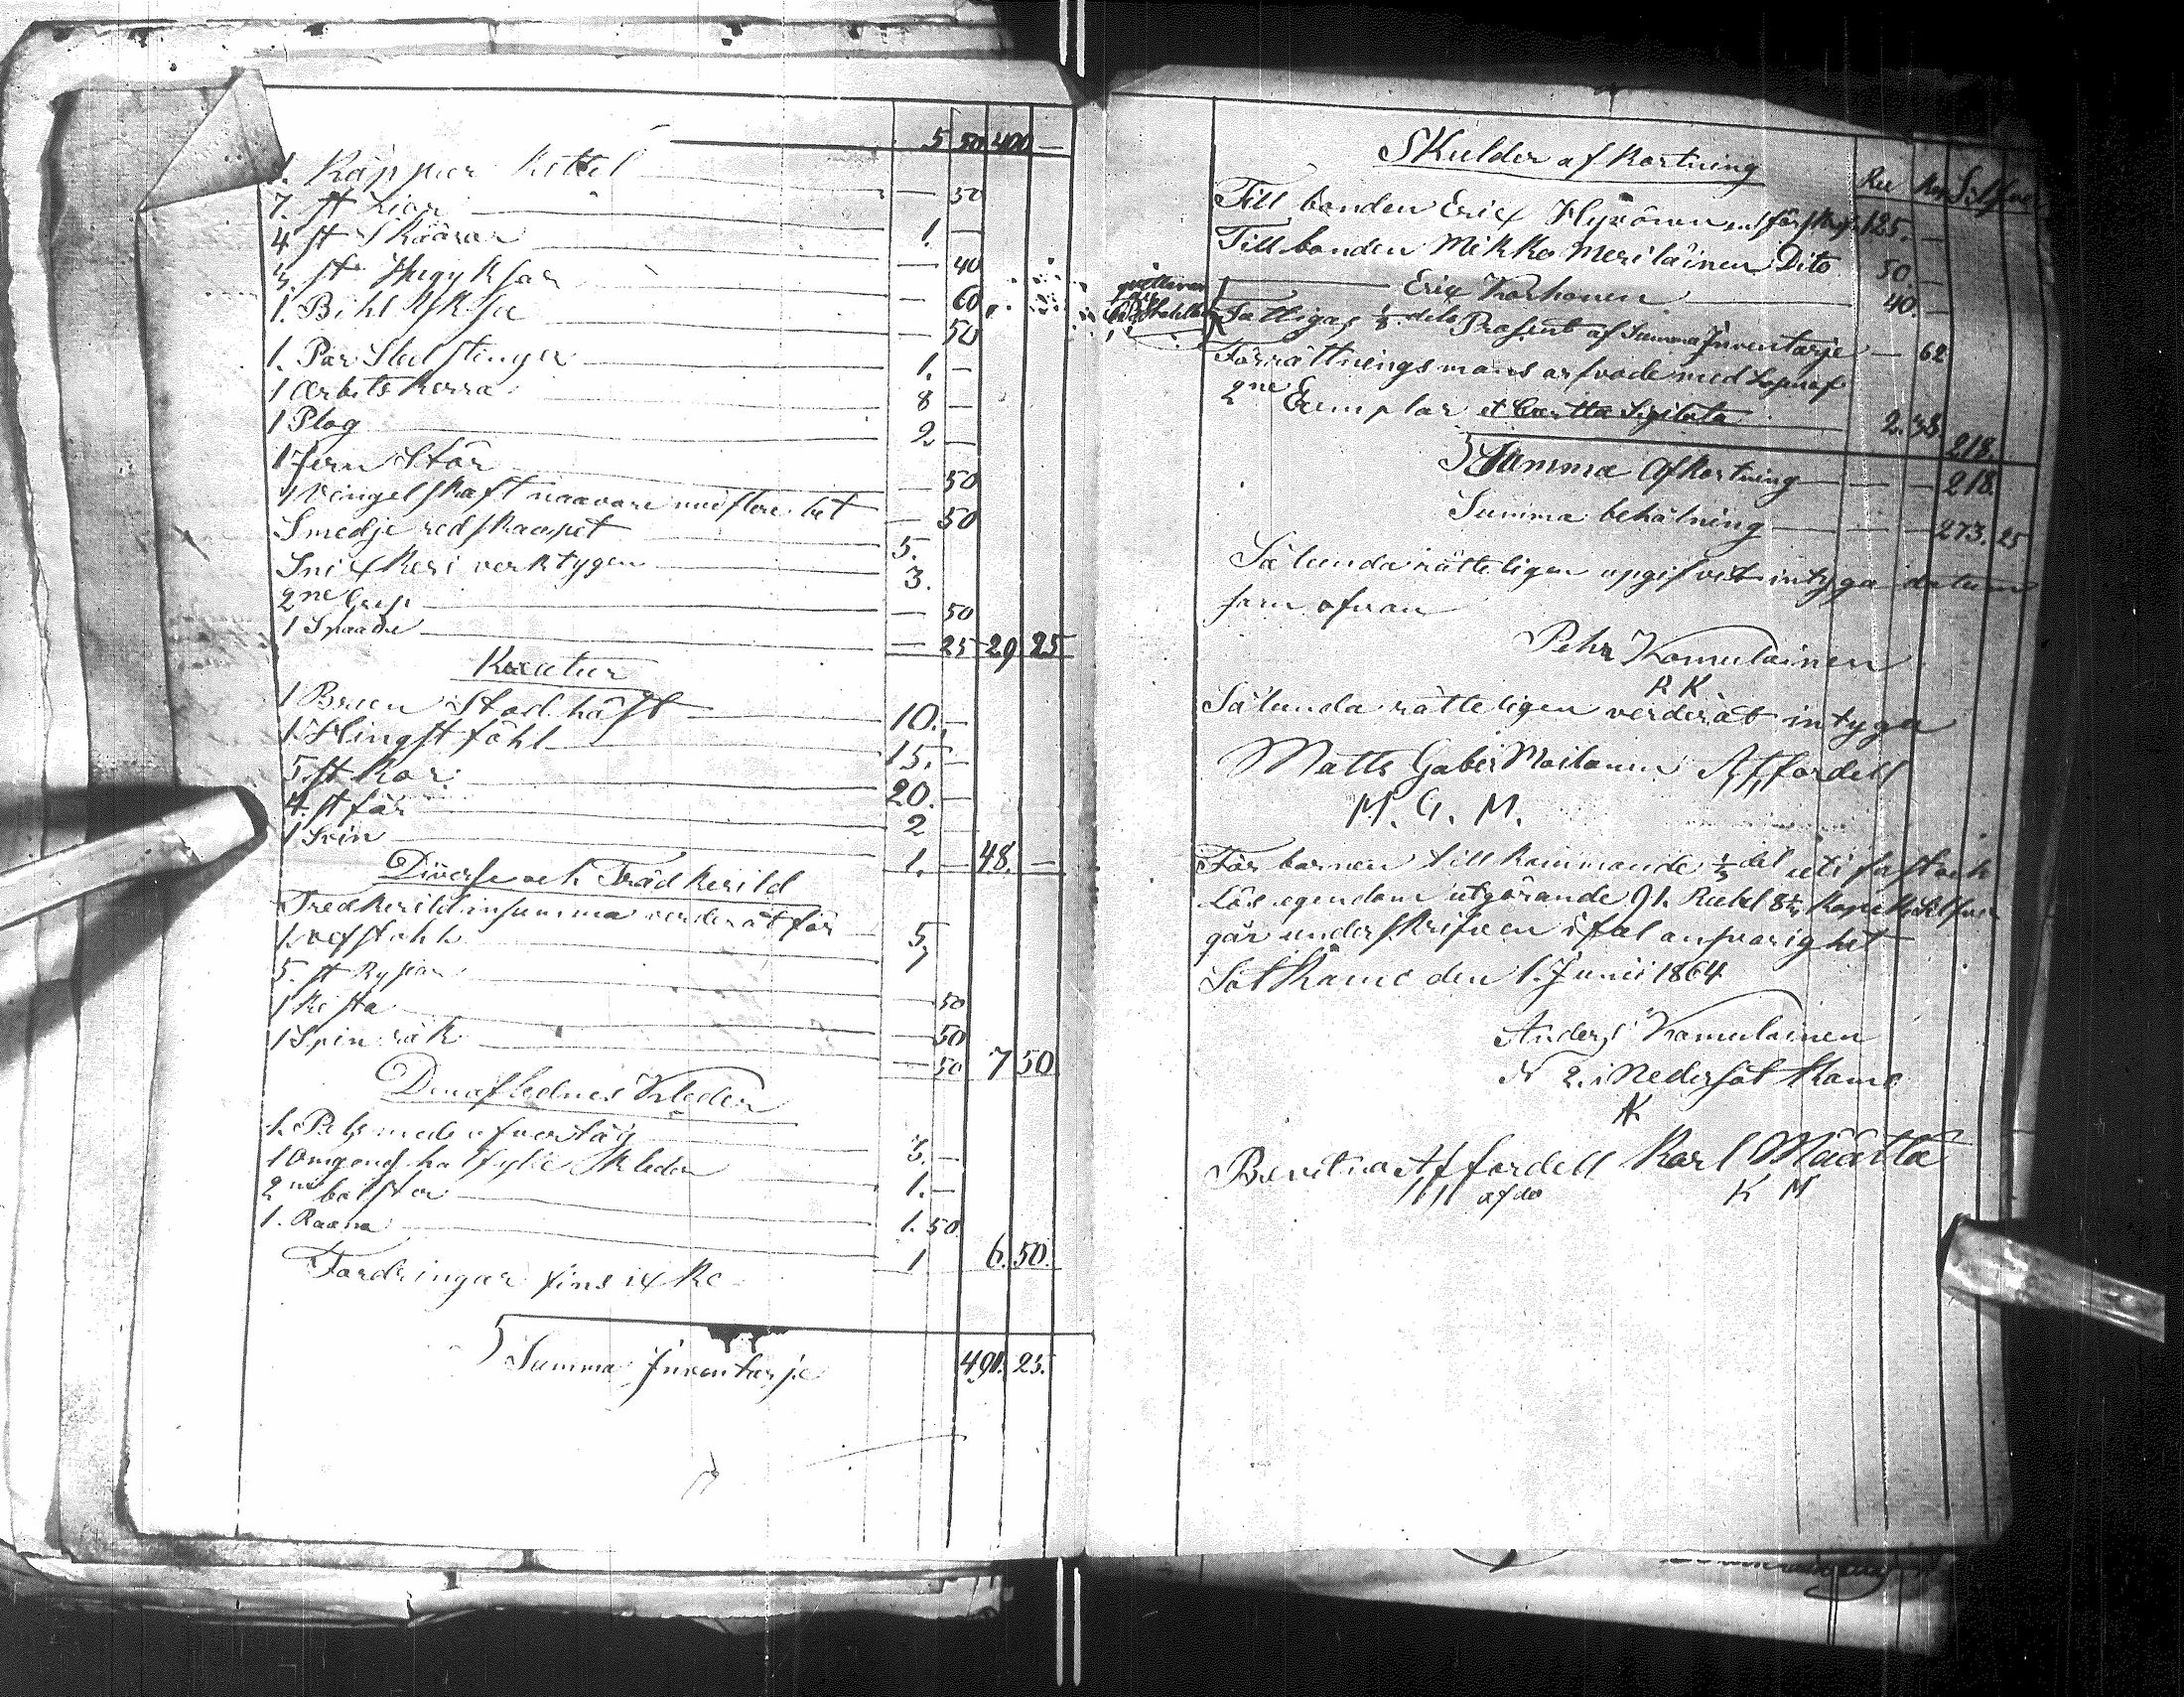 5 50 400 —
1. Käppar Kettel — 50
7. st Liar 1. —
4 st Skäärar — 40
3. st Hugyksar — 60
1. Bihl Yksa — 50
1. Par Sled stenger 1. —
1 Arbets Kerra 8 —
1 Plog 2 —
1 Jern Stör — 50
1 Vingelskaft naavare med flere bet — 50
Smedje redskaapet 5.
Snixkeri verktygen 3.
2ne — 50
1 Spaade — 25 29 25
Kreatur
1 Bruen Stod häst 10. —
1. Hingst föhl 15. —
5. st Kor 20. —
4. st får 2
1 Svin 1. — 48. —
Diverse och Trädkerild
Tredkerild insumma verderat för 5
1. vefstohl 1
5. st Ryssar — 50
1 Kista — 50
1 Spin råk — 50 7 50
Den aflednes Kleder
1. Pels med ofvertåg 3. —
1 Omgong halfylle Kleder 1. —
2ne bolster 1. 50
1. Raana 1 6. 50.
Fordringar fins ixke
Summa Inventarje 491. 25.
Skulder af Kortning
Rub Kop Silfver
Till bonden Eric Hyxönen enl förskr. 125. —
Till bonden Mikko Meriläinen Dito 50. —
Eric Korhonen 40. —
qvitteras
Fattigas 1/8 dels Prosent af Summa Inventarje — 62
Förrättningsmans arfvode med
2ne Exemplar et Cartta Sigilata 2. 38. 218.
Summa Afkortning 218.
Summa behålning 273. 25
Sålunda rätteligen upgifvet intyga datum
som ofvan
Pehr Komulainen
P. K.
Sålunda rätteligen verderat intyga
Matts Gaber Moilanen A. Affordell
M. G. M.
För barnen tillkommande 1/3 del uti fast och
Lös egendom utgörande 91. Rubl 8 1/3 Kopek Silfver
går underskrifven i ful ansvarighet
Sotkamo den 1. Junii 1864
Anders Komulainen
N 2. i Nedersotkamo
AK
Bevitna Affordell Karl Määtta
K M